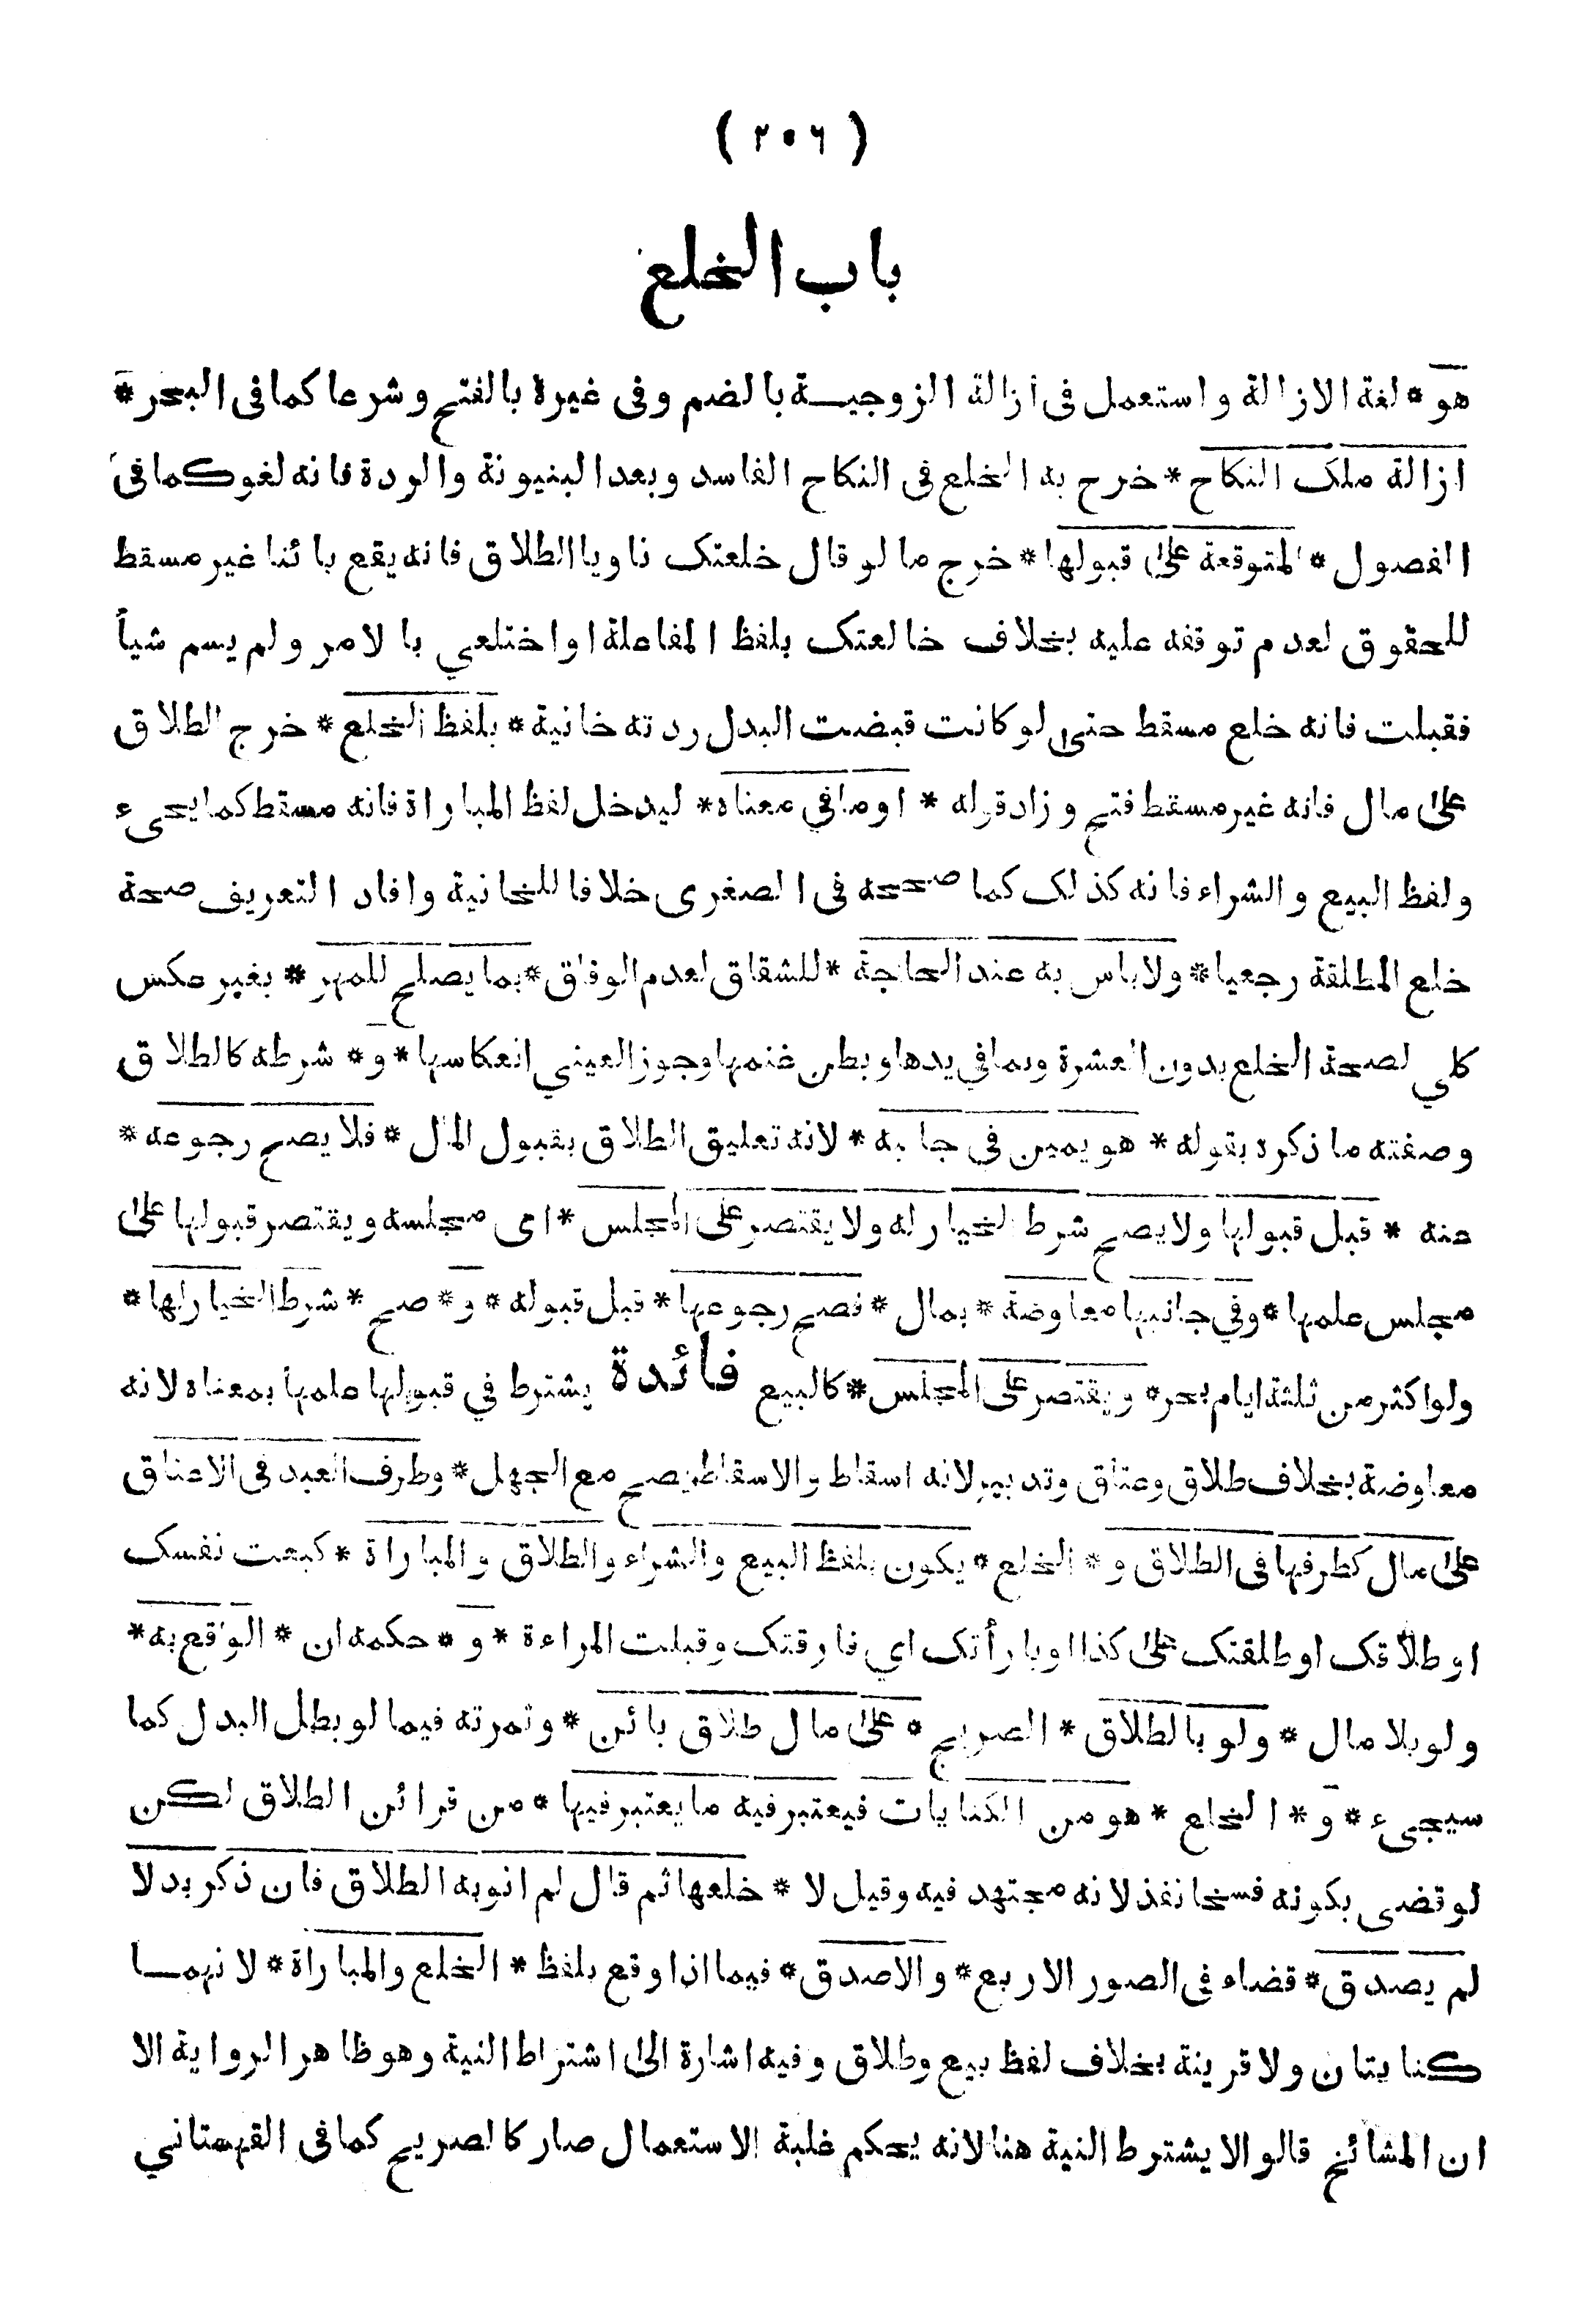 ( ٢٠٦ )
باب الخلع
هو * لغة الازالة واستعمل فى ازالة الزوجيـــة بالضم وفى غيرة بالفتح وشرعا كما فى البحر *
ازالة ملك النكاح * خرج به الخلع فى النكاح الفاسد وبعد البنيونة والردة فانه لغو كما فى
الفصول * المتوقعة على قبولها * خرج ما لو قال خلعتك ناويا الطلاق فانه يقع بائنا غير مسقط
للحقوق لعدم توقفه عليه بخلاف خالعتك بلفظ المفاعلة او اختلعي بالامر ولم يسم شيأ
فقبلت فانه خلع مسقط حتى لو كانت قبضت البدل ردته خانية * بلفظ الخلع * خرج الطلاق
على مال فانه غير مسقط فتح وزاد قوله * او ما في معناه * ليدخل لفظ المباراة فانه مسقط كما يجىء
ولفظ البيع والشراء فانه كذلك كما صححه فى الصغرى خلافا للخانية وافاد التعريف صحة
خلع المطلقة رجعيا * ولا باس به عند الحاجة * للشقاق لعدم الوفاق * بما يصلح للمهر * بغير عكس
كلي لصحة الخلع بدون العشرة وبما في يدها وبطن غنمها وجوز العيني انعكاسها * و * شرطه كالطلاق
وصفته ما ذكره بقوله * هو يمين في جانبه * لانه تعليق الطلاق بقبول المال * فلا يصح رجوعه *
عنه * قبل قبولها ولا يصح شرط الخيار له ولا يقتصر على المجلس * اى مجلسه ويقتصر قبولها على
مجلس علمها * وفي جانبها معاوضة * بمال * فصح رجوعها * قبل قبوله * و * صح * شرط الخيار لها *
ولو اكثر من ثلثة ايام بحر * ويقتصر على المجلس * كالبيع فائدة يشترط في قبولها علمها بمعناه لانه
معاوضة بخلاف طلاق وعتاق وتدبير لانه اسقاط والاسقاط يصح مع الجهل * وطرف العبد فى الاعتاق
على مال كطرفها فى الطلاق و * الخلع * يكون بلفظ البيع والشراء والطلاق والمباراة * كبعت نفسك
او طلاقك او طلقتك على كذا او بارأتك اي فارقتك وقبلت المراءة * و * حكمه ان * الواقع به *
ولو بلا مال * ولو بالطلاق * الصريح * على مال طلاق بائن * وثمرته فيما لو بطل البدل كما
سيجىء * و * الخلع * هو من الكنايات فيعتبر فيه ما يعتبر فيها * من قرائن الطلاق لكن
لو قضى بكونه فسخا نفذ لانه مجتهد فيه وقيل لا * خلعها ثم قال لم انو به الطلاق فان ذكر بدلا
لم يصدق * قضاء فى الصور الاربع * والا صدق * فيما اذا وقع بلفظ * الخلع والمباراة * لانهمــا
كنايتان ولا قرينة بخلاف لفظ بيع وطلاق وفيه اشارة الى اشتراط النية وهو ظاهر الرواية الا
ان المشائخ قالوا لا يشترط النية هنا لانه بحكم غلبة الاستعمال صار كالصريح كما فى القهستاني